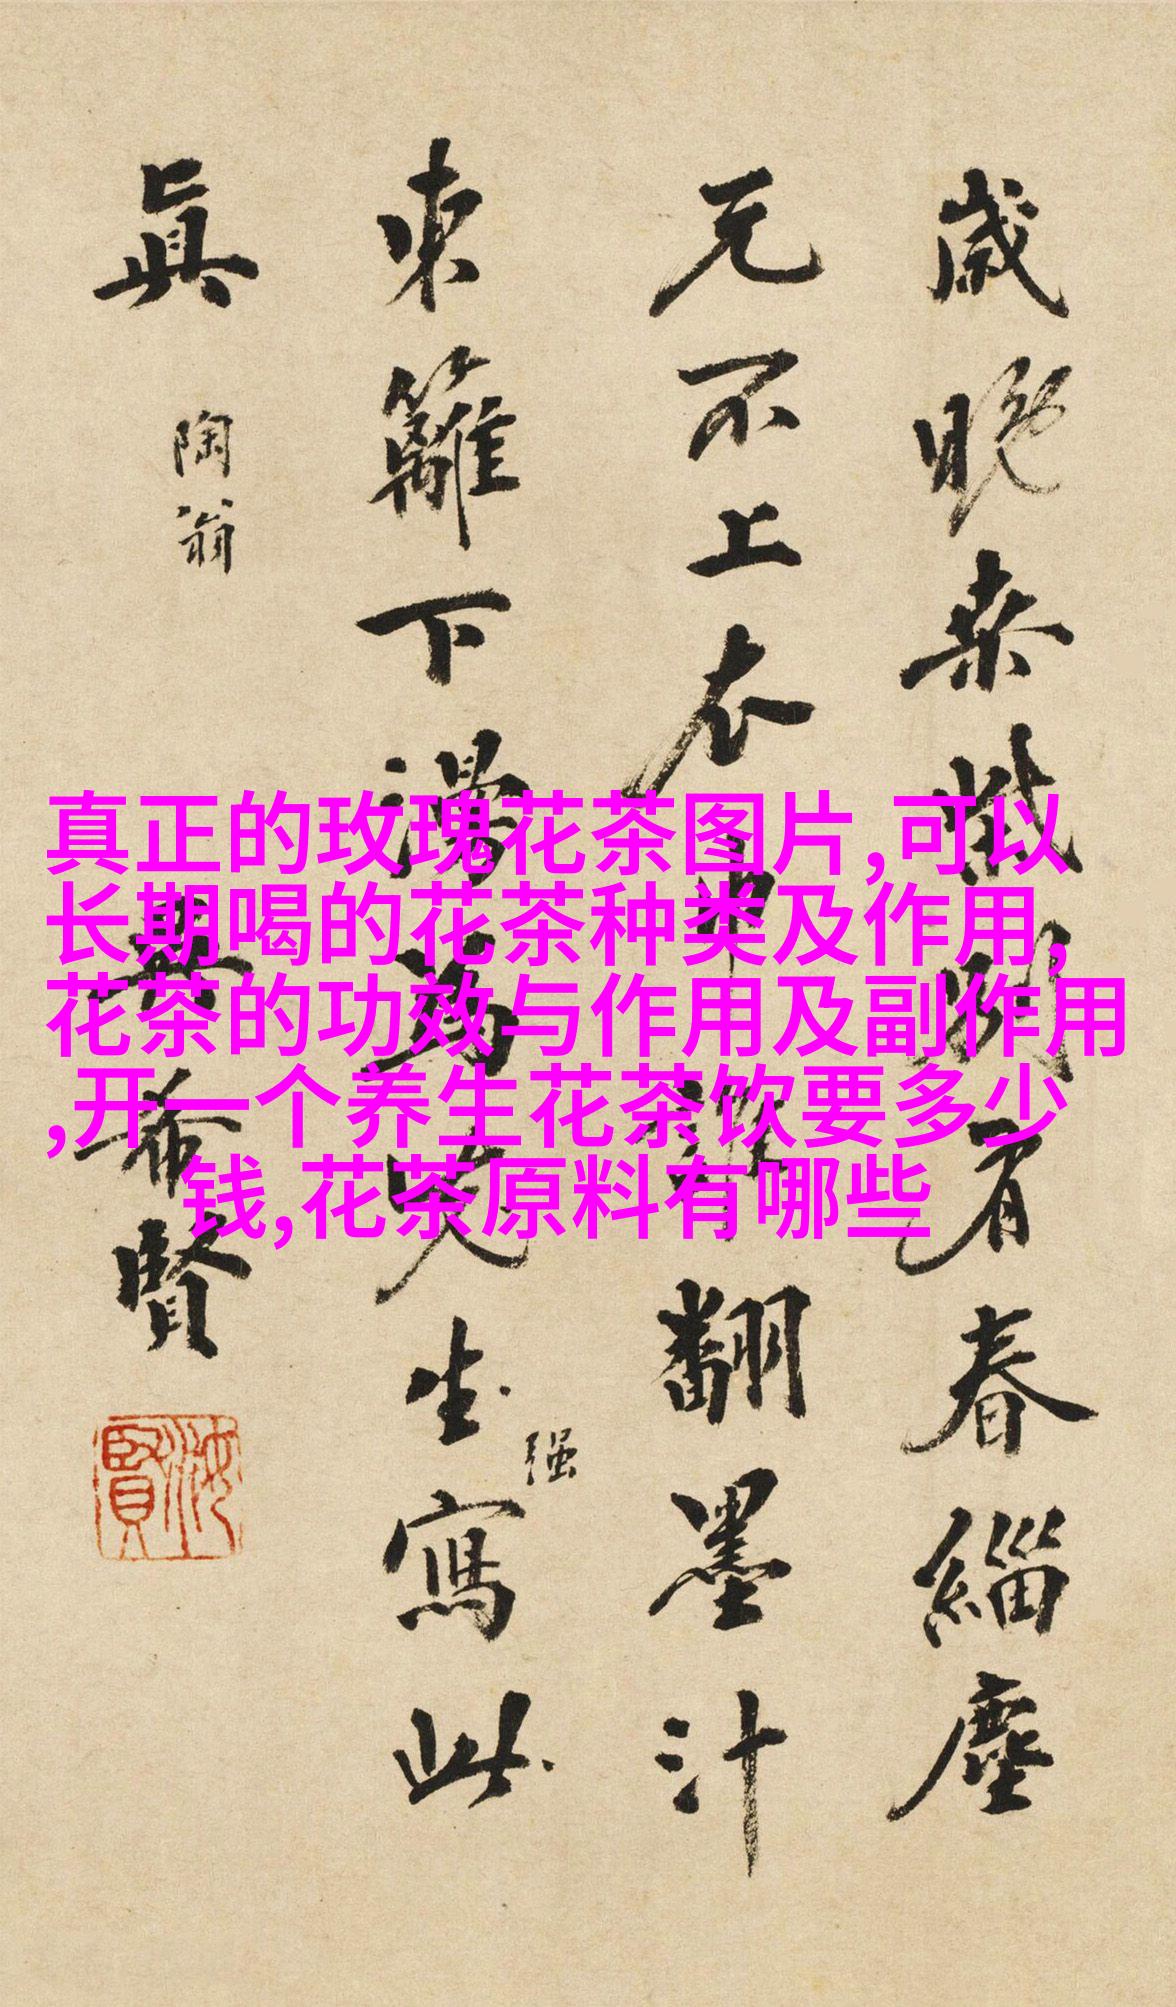 真正的玫瑰花茶图片,可以
长期喝的花茶种类及作用,
花茶的功效与作用及副作用
,开一个养生花茶饮要多少
钱,花茶原料有哪些
歲晚有春緇塵
元不上衣巾誰翻墨汁
東籬下漫為先生寫此
强
真
陶翁
吳希賢
汝賢